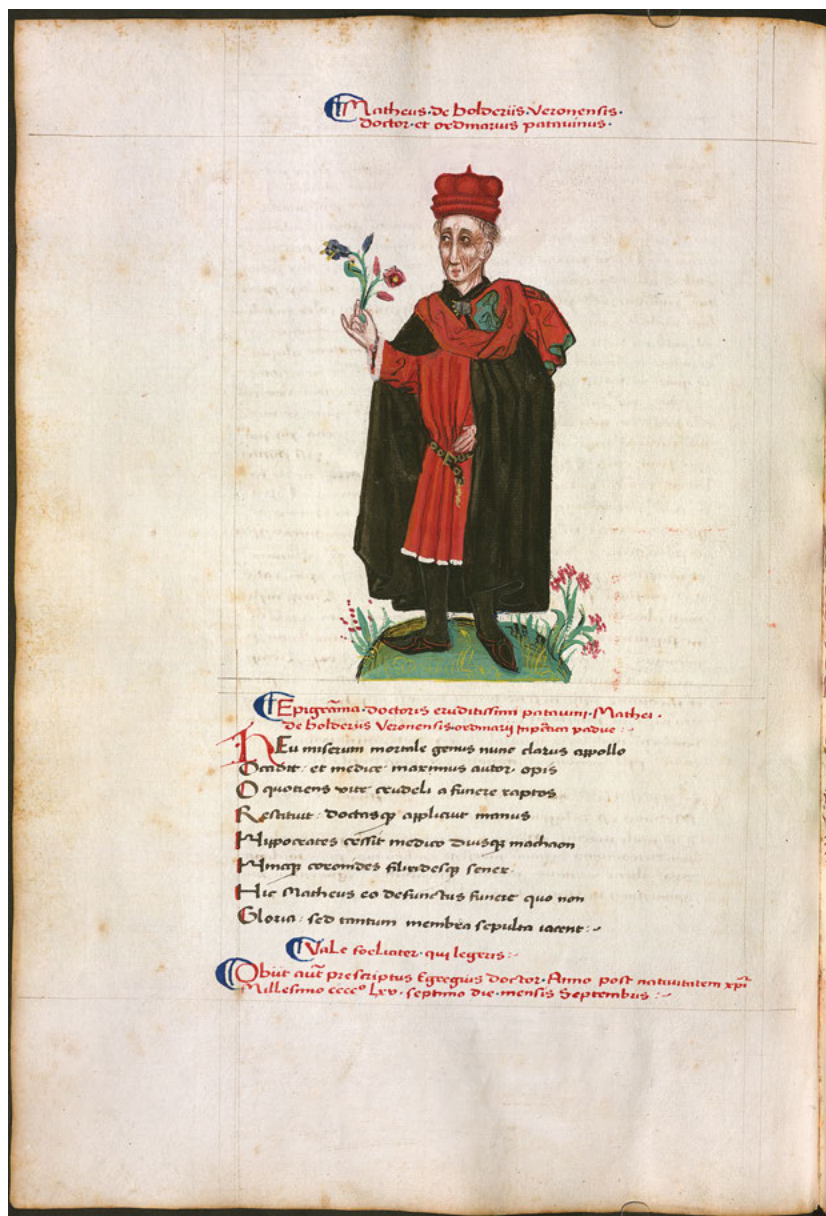 Matheus·de bolderiis·Veronensis·
doctor·et ordinarius patauinus·
Epigrãma·doctoris eruditissimi patauini·Mathei·
de bolderiis Veronensis·ordinarij padue:
HEu miserum mortale genus nunc clarus appollo
Occidit: et medice maximus autor· opis
O quotiens vite crudeli a funere raptos
Restituit: doctasqȝ applicuit manus
Hippocrates cessit medico diuusqȝ machaon
coronides filiridesqȝ senex·
Hic Matheus eo defunctus funere quo non
Gloria: sed tantum membra sepulta iacent:
Vale foeliciter· qui legeris:
Obiit aut̃ prescriptus Egregius doctor·Anno post natiuitatem xp̃i
Millesimo ccccº Lxv· septimo die·mensis Septembris: